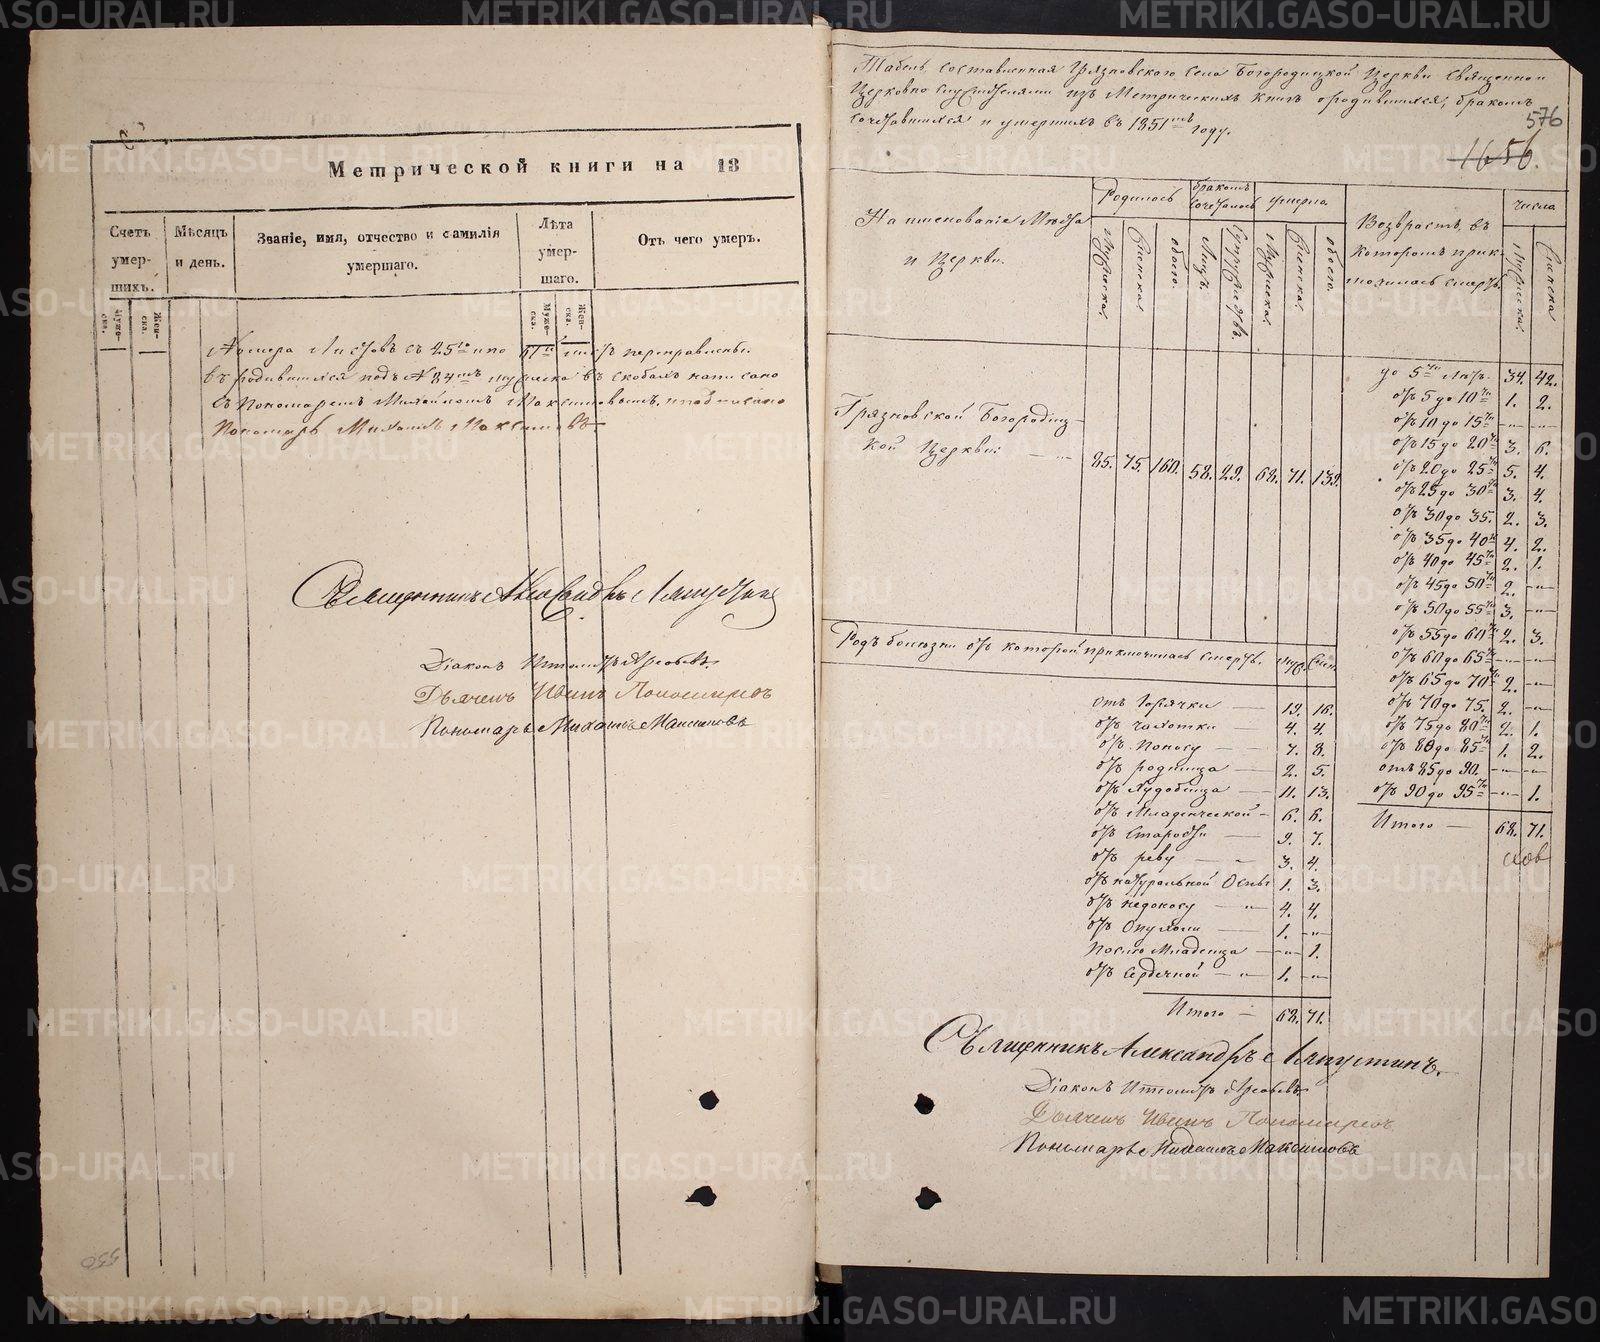 Метрической книги на 18
Счетъ умер- шихъ.
Мѣсяцъ и день.
Званіе, имя, отчество и фамилія умершаго.
Лѣта умер- шаго.
Отъ чего умеръ.
Муже- ска.
Жен- ска.
Муже- ска.
Жен- ска.
Номера листовъ съ 25го по листъ переправлены.
въ родившихся подъ № 84мъ мужеска въ скобахъ написано
съ Пономаремъ Михайломъ Максимовымъ, подписано
Пономарь Михаилъ Максимовъ
Священникъ Александръ Ляпустинъ
Діаконъ
Дьячекъ Иванъ Пономаревъ
Пономарь Михаилъ Максимовъ
550
Табель, составленная Грязновскаго села Богородицкой Церкви Священно и
Церковно служителями изъ Метрическихъ Книгъ о родившихся, бракомъ
сочетавшихся и умершихъ въ 1851мъ году.
576
1656.
Наименованіе Мѣста и Церкви.
Родилось
бракомъ сочеталось
умерло
Возврастъ, въ которомъ приключилась смерть.
числа
Мужеска.
Женска.
обоего.
Лицъ.
Супружествъ.
Мужеска.
Женска.
обоего.
Мужеска.
Женска
Грязновской Богородиц-
кой Церкви: 85. 75. 160. 58. 29. 68. 71. 139.
до 5ти лѣтъ. 34. 42.
отъ 5 до 10ти 1. 2.
отъ 10 до 15ти — —
отъ 15 до 20ти 3. 6.
отъ 20 до 25ти 5. 4.
отъ 25 до 30ти 3. 4.
отъ 30 до 35. 2. 3.
отъ 35 до 40 4. 2.
отъ 40 до 45ти 2. 1.
отъ 45 до 50ти 2. —
отъ 50 до 55ти 3. —
отъ 55 до 60ти 2. 3.
отъ 60 до 65ти — —
отъ 65 до 70ти 2. —
отъ 70 до 75. 2. —
отъ 75 до 80ти 2. 1.
отъ 80 до 85ти 1. 2.
отъ 85 до 90. — —
отъ 90 до 95ти — 1.
Итого — 68. 71.
Родъ болѣзни отъ которой приключилась смерть. муж. жен.
отъ Горячки — 19. 16.
отъ чахотки — 4. 4.
отъ поносу — 7. 8.
отъ родимца — 2. 5.
отъ Худобища — 11. 13.
отъ Младенческой — 6. 6.
отъ Старости — 9. 7.
отъ реву — 3. 4.
отъ натуральной Оспы 1. 3.
отъ недоносу — 4. 4.
отъ Опухоли — 1. —
послѣ Младенца — — 1.
отъ Сердечной — 1. —
Итого — 68. 71.
Священникъ Александръ Ляпустинъ.
Діаконъ
Дьячекъ Иванъ Пономаревъ
Пономарь Михаилъ Максимовъ
METRIKI.GASO-URAL.RU